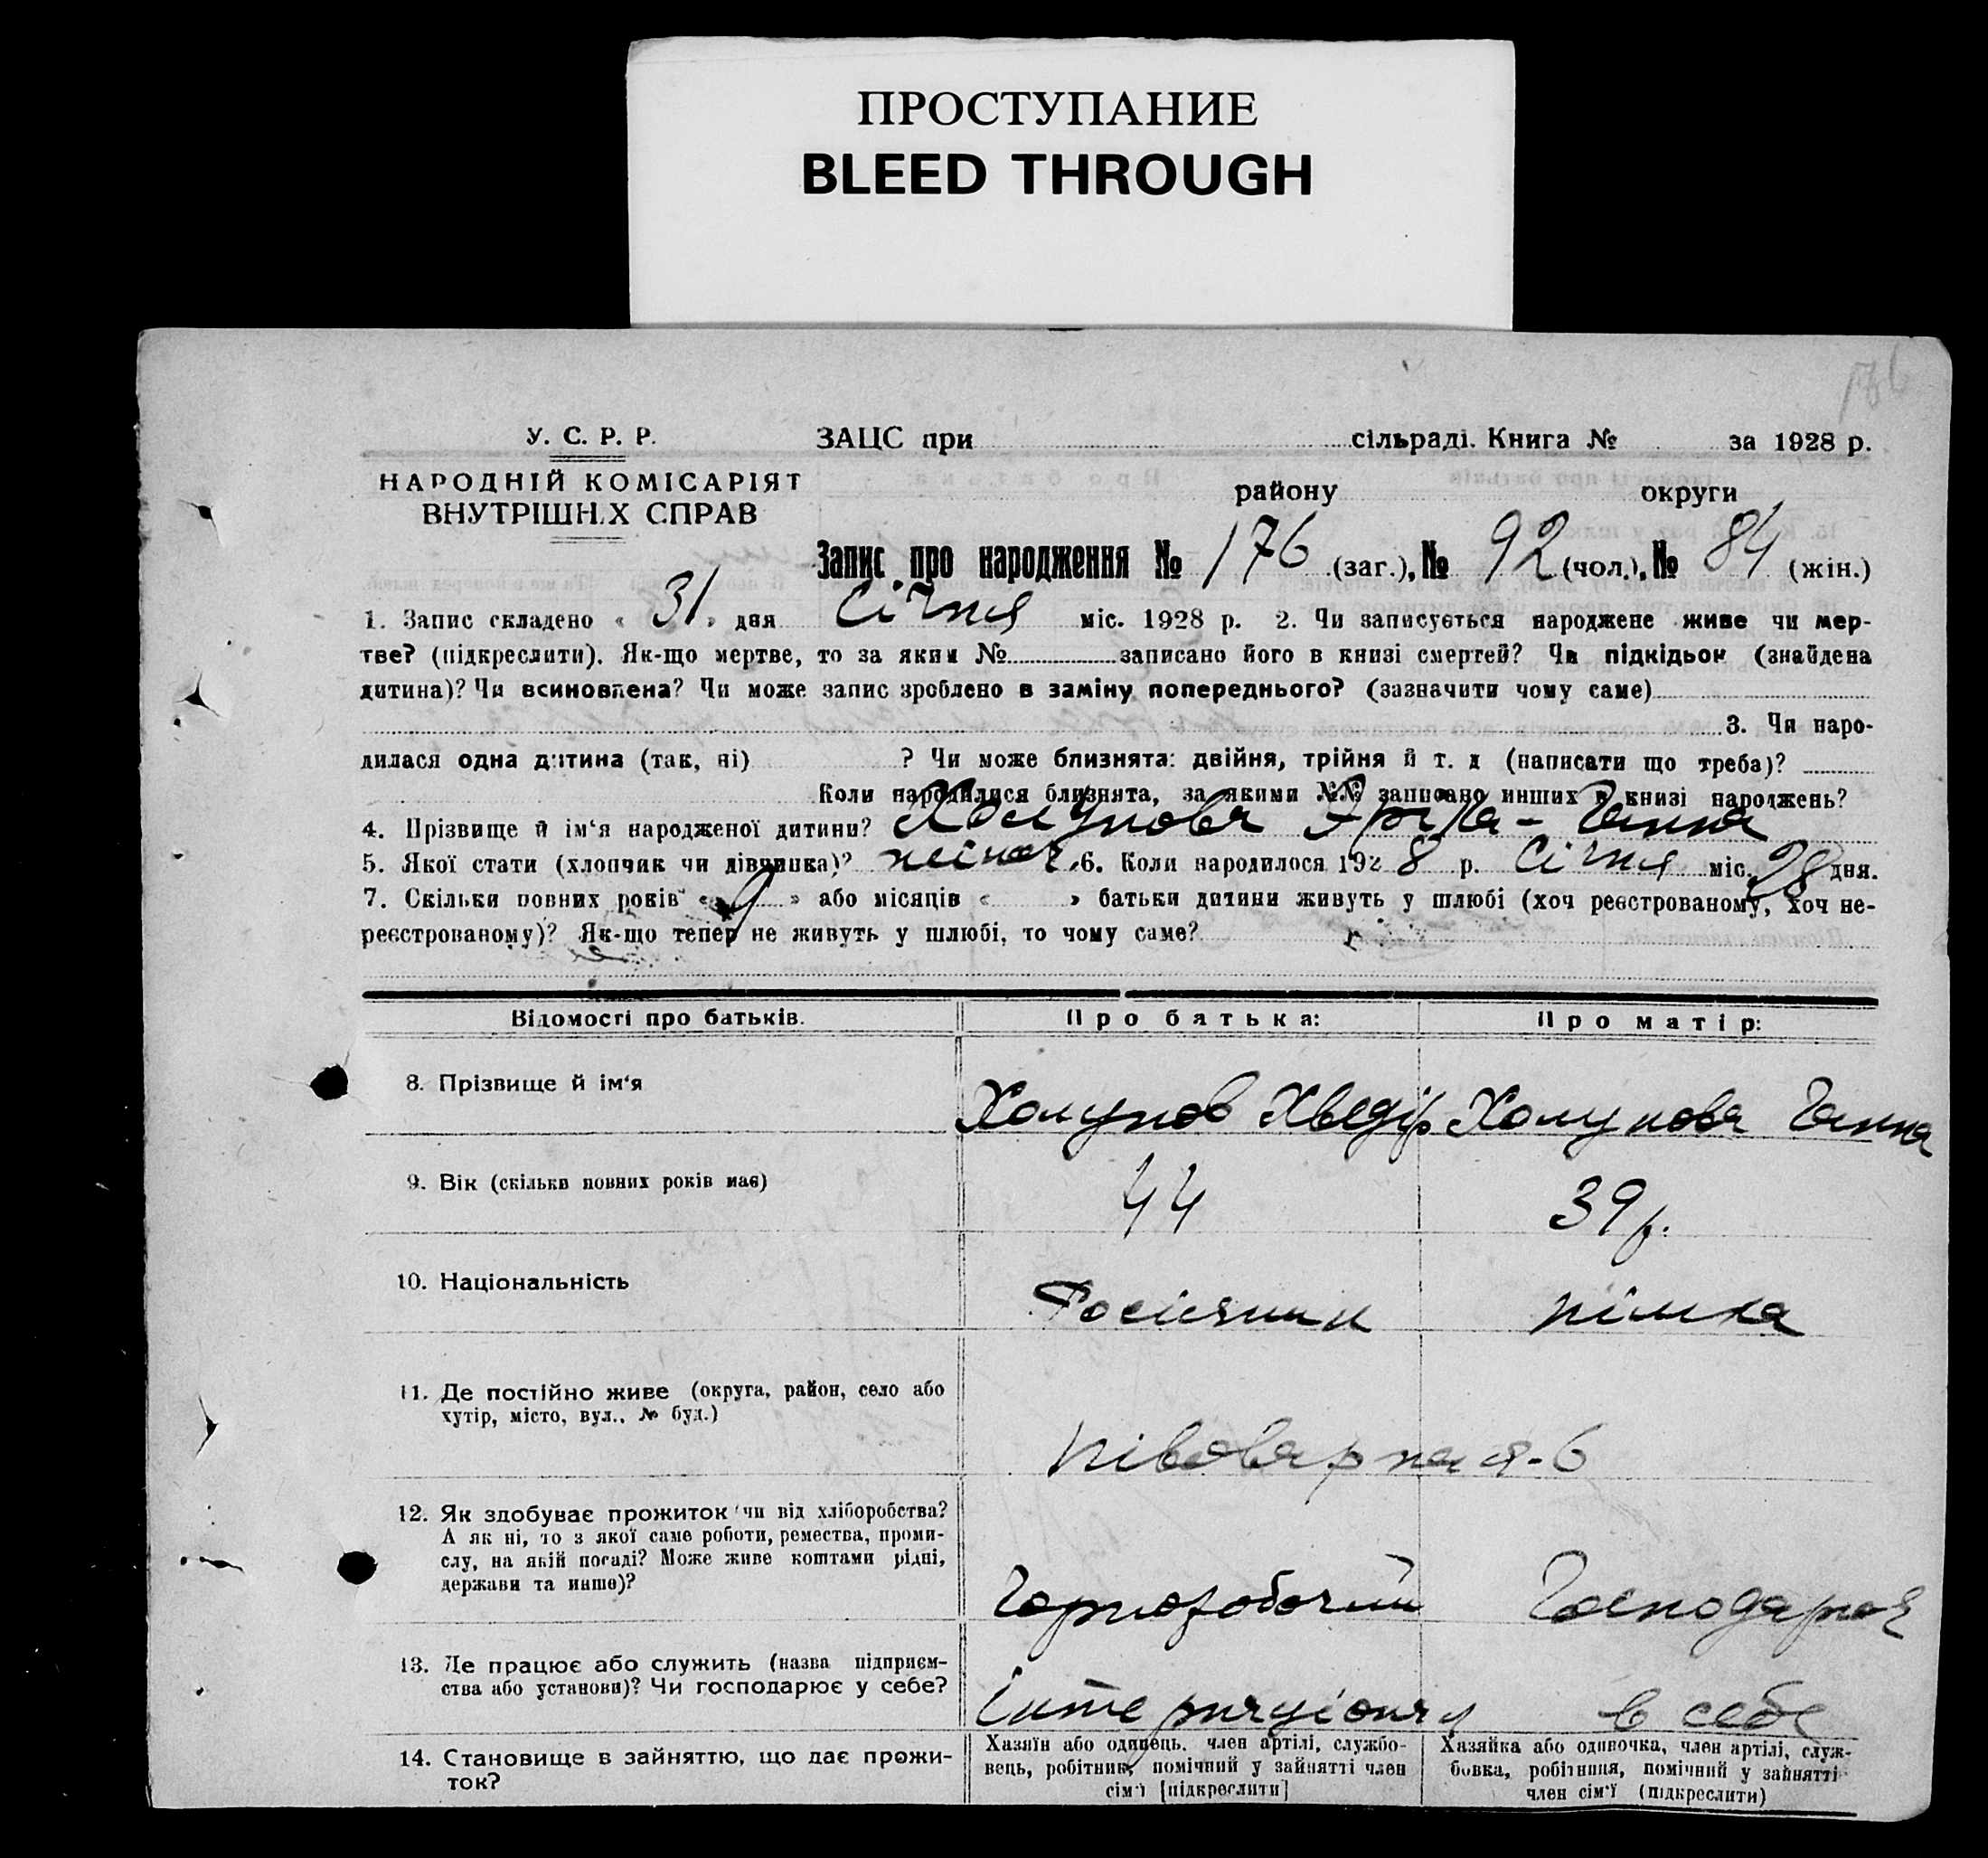 ПРОСТУПАНИЕ
BLEED THROUGH
176
У. С. Р. Р.
ЗАЦС при сільраді. Книга № за 1928 р.
НАРОДНІЙ КОМІСАРІЯТ
ВНУТРІШНІХ СПРАВ
району округи
Запис про народження № 176 (заг.), № 92 (чол.), № 84 (жін.)
1. Запис складено « 31 » дня Січня міс. 1928 р. 2. Чи записується народжене живе чи мер-
тве? (підкреслити). Як-що мертве, то за яким № записано його в книзі смертей? Чи підкідьок (знайдена
дитина)? Чи всиновлена? Чи може запис зроблено в заміну попереднього? (зазначити чому саме)
3. Чи наро-
дилася одна дитина (так, ні) ? Чи може близнята: двійня, трійня й т. д (написати що треба)?
Коли народилися близнята, за якими №№ записано инших в книзі народжень?
4. Прізвище й ім‘я народженої дитини? Холунова - Ганна
5. Якої стати (хлопчик чи дівчинка)? 6. Коли народилося 1928 р. Січня міс. 28 дня.
7. Скільки повних років « 9 » або місяців « » батьки дитини живуть у шлюбі (хоч реєстрованому, хоч не-
реєстрованому)? Як-що тепер не живуть у шлюбі, то чому саме?
Відомості про батьків.
Про батька:
Про матір:
8. Прізвище й ім‘я
Холунов Хведір
Холунова Ганна
9. Вік (скільки повних років має)
44
39 р.
10. Національність
Росіянин
німка
11. Де постійно живе (округа, район, село або
хутір, місто, вул., № буд.)
Півоварная - 6
12. Як здобуває прожиток (чи від хліборобства?
А як ні, то з якої саме роботи, ремества, проми-
слу, на якій посаді? Може живе коштами рідні,
держави та инше)?
Горноробочий
Господарка
13. Де працює або служить (назва підприєм-
ства або установи)? Чи господарює у себе?
в себе
14. Становище в зайняттю, що дає прожи-
ток?
Хазяїн або одинець, член артілі, службо-
вець, робітник, помічний у зайнятті член
сім‘ї [підкреслити]
Хазяйка або одиночка, член артілі, служ-
бовка, робітниця, помічний у зайнятті
член сім‘ї (підкреслити)